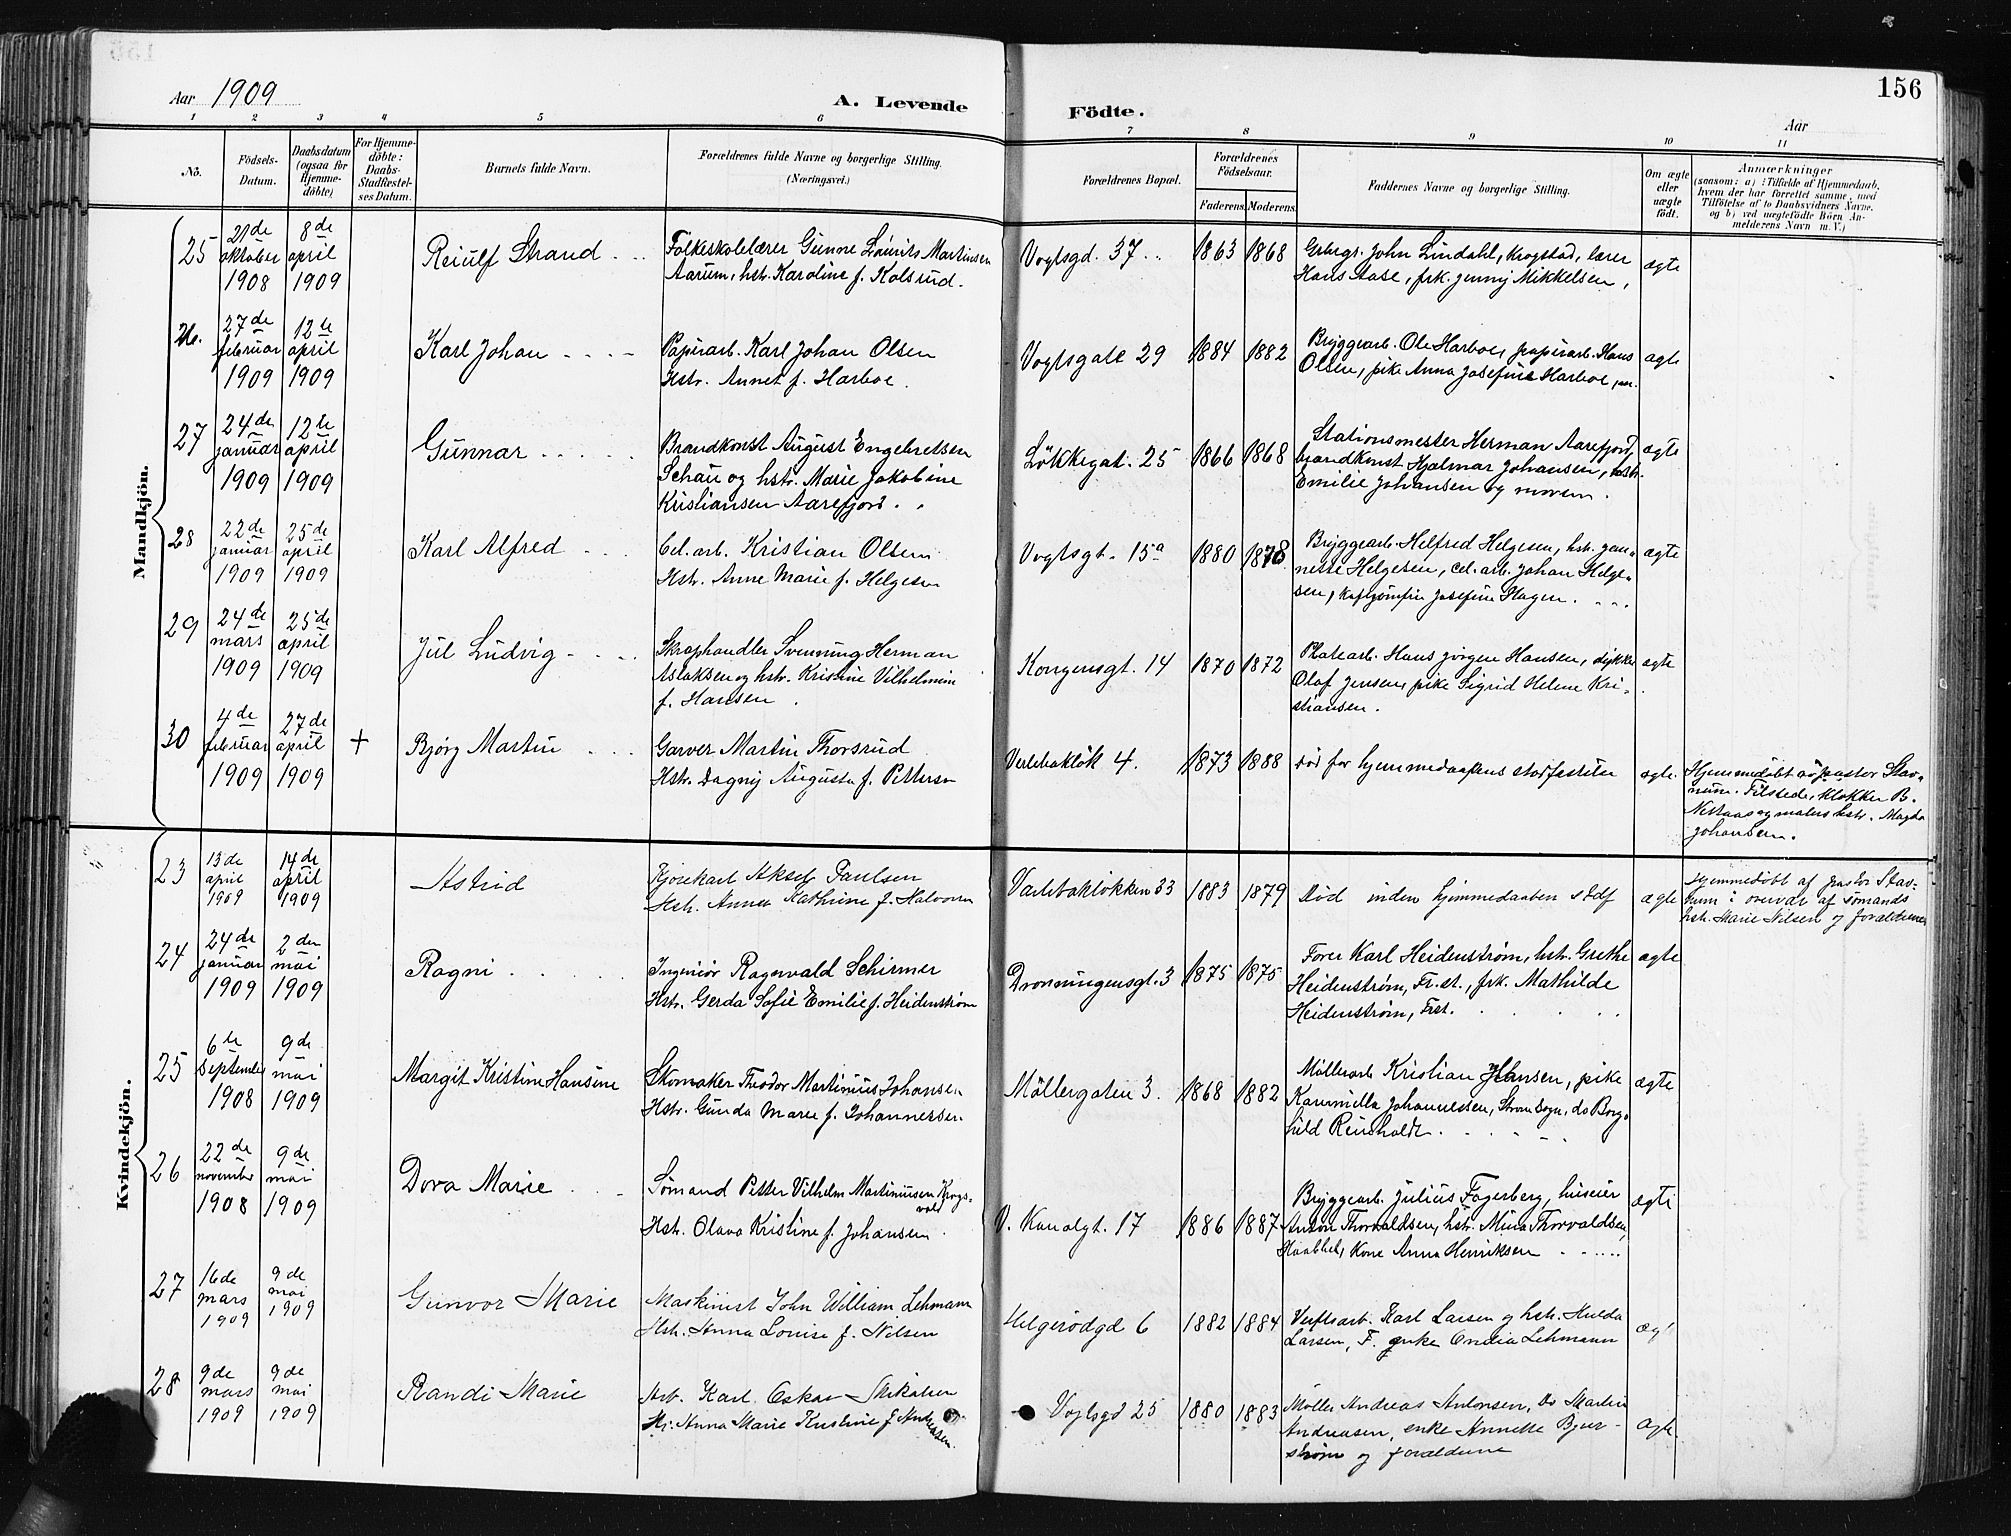 156
Aar 1909
A. Levende Födte.
Aar
1 2 3 4 5 6 7 8 9 10 11
No.
Födsels-Datum.
Daabsdatum (ogsaa for Hjemme-döbte)
For Hjemme-döbte: Daabs-Stadfæstel-ses Datum.
Barnets fulde Navn.
Forældrenes fulde Navne og borgerlige Stilling. (Næringsvei.)
Forældrenes Bopæl.
Forældrenes Födselsaar.
Faderens. Moderens.
Faddernes Navne og borgerlige Stilling.
Om ægte eller uægte födt.
Anmærkninger
(saasom: a) i Tilfælde af Hjemmedaab, hvem der har forrettet samme, med Tilföielse af to Daabsvidners Navne, og b) ved uægtefödte Börn An-melderens Navn m. V.)
Mandkjön.
25 21de oktober 1908 8de april 1909 Reiulf Strand Folkeskolelærer Gunne Laurits Martinsen
Aarum, hstr. Karoline f. Kolsrud. Vogtsgd. 37 1863 1868 Grbrgr. John Lindahl, Krogstad, lærer
Hans Aase, frk. Jenny Mikkelsen, ægte
26. 27de februar 1909 12te april 1909 Karl Johan Papirarb. Karl Johan Olsen
Hstr. Annet f. Harboe. Vogtsgate 29 1884 1882 Bryggearb. Ole Harboe, papirarb. Hans
Olsen, pike Anna Josefine Harboe, ægte
27 24de januar 1909 12te april 1909 Gunnar Brandkonst August Engebretsen
Schau og hstr. Marie Jakobine
Kristiansen Aarefjord. Lökkegat. 25 1866 1868 Stationsmester Herman Aarefjord,
brandkonst Hjalmar Johansen, hstr.
Emilie Johansen og moren. ægte
28 22de januar 1909 25de april 1909 Karl Alfred Cel. arb. Kristian Olsen
Hstr. Anne Marie f. Helgesen Vogtsgt. 15a 1880 1878 Bryggearb. Helfred Helgesen, hstr. Jen-
nette Helgesen, cel. arb. Johan Helge-
sen, Josefine Hagen. ægte
29 24de mars 1909 25de april 1909 Jul Ludvig Skraphandler Svenning Herman
Aslaksen og hstr. Kristine Vilhelmine
f. Hansen Kongensgt. 14 1870 1872 Platearb. Hans Jörgen Hansen, dykker
Olaf Jensen, pike Sigrid Helene Kri-
stiansen. ægte
30 4de februar 1909 27de april 1909 + Bjørg Martin Garver Martin Thorsrud
Hstr. Dagny Augusta f. Pettersen Verlebaklök 4. 1873 1888 død før hjemmedaapens stadfæstelse ægte. Hjemmedøbt v/pastor Stav-
num. Tilstede, klokker B.
og malers hstr. Magda
Johansen.
Kvindekjön.
23 13de april 1909 14de april 1909 Astrid Kjørekarl Aksel Paulsen
Hstr. Anna Kathrine f. Halvorsen Varlebakløkken 33 1883 1879 Død inden hjemmedaaben stadf ægte Hjemmedøbt af pastor Stav-
num i overvær af sömands
hstr. Marie Nilsen og forældrene
24 24de januar 1909 2den mai 1909 Ragni Ingeniør Ragnvald Schirmer
Hstr. Gerda Sofie Emilie f. Heidenstrøm Dronningensgt. 3 1875 1875 Fører Karl Heidenstrøm, hstr. Grethe
Heidenstrøm, Fr.st., frk. Mathilde
Heidenstrøm, Frst. ægte
25 6te september 1908 9de mai 1909 Margit Kristine Hansine Skomaker Theodor Martinius Johansen
Hstr. Gunda Marie f. Johannessen. Möllergaten 3. 1868 1882 Möllerarb Kristian Hansen, pike
Kammilla Johannessen, do Borg-
hild Reinholdt. ægte
26 22de november 1908 9de mai 1909 Dora Marie Sömand Petter Vilhelm Martiniusen Krogs-
vold
Hstr. Olava Kristine f. Johansen V. Kanalgt. 17 1886 1887 Bryggearb. Julius Fagerberg, huseier
Anton Thorvaldsen, hstr. Mina Thorvaldsen,
Kone Anna Henriksen ægte
27 16de mars 1909 9de mai 1909 Gunvor Marie Maskinist John William Lehmann
Hstr. Anna Louise f. Nilsen Helgerödgd 6 1882 1884 Verftsarb. Karl Larsen og hstr. Hulda
Larsen, F. enke Lehmann ægt
28 9de mars 1909 9de mai 1909 Randi Marie Arb. Karl Oskar Mikalsen
H: Anna Marie Kristine f. Andreasen. Vogtsgd 25 1880 1883 Mölle Andreas Antonsen, Do Martin
Andreasen, enke Annette Bjur-
strøm og forældrene ægte